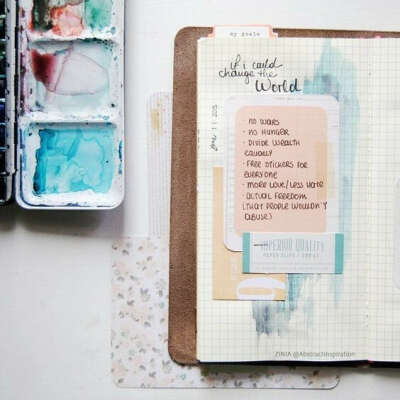 my goals
if i could
change the
World
2015
• no wars
• no hunger
• divide wealth
equally
• free stickers for
everyone
• more love/less hate
• actual freedom
(that people wouldn't
abuse)
SUPERIOR QUALITY
ZINIA @AbstractInspiration